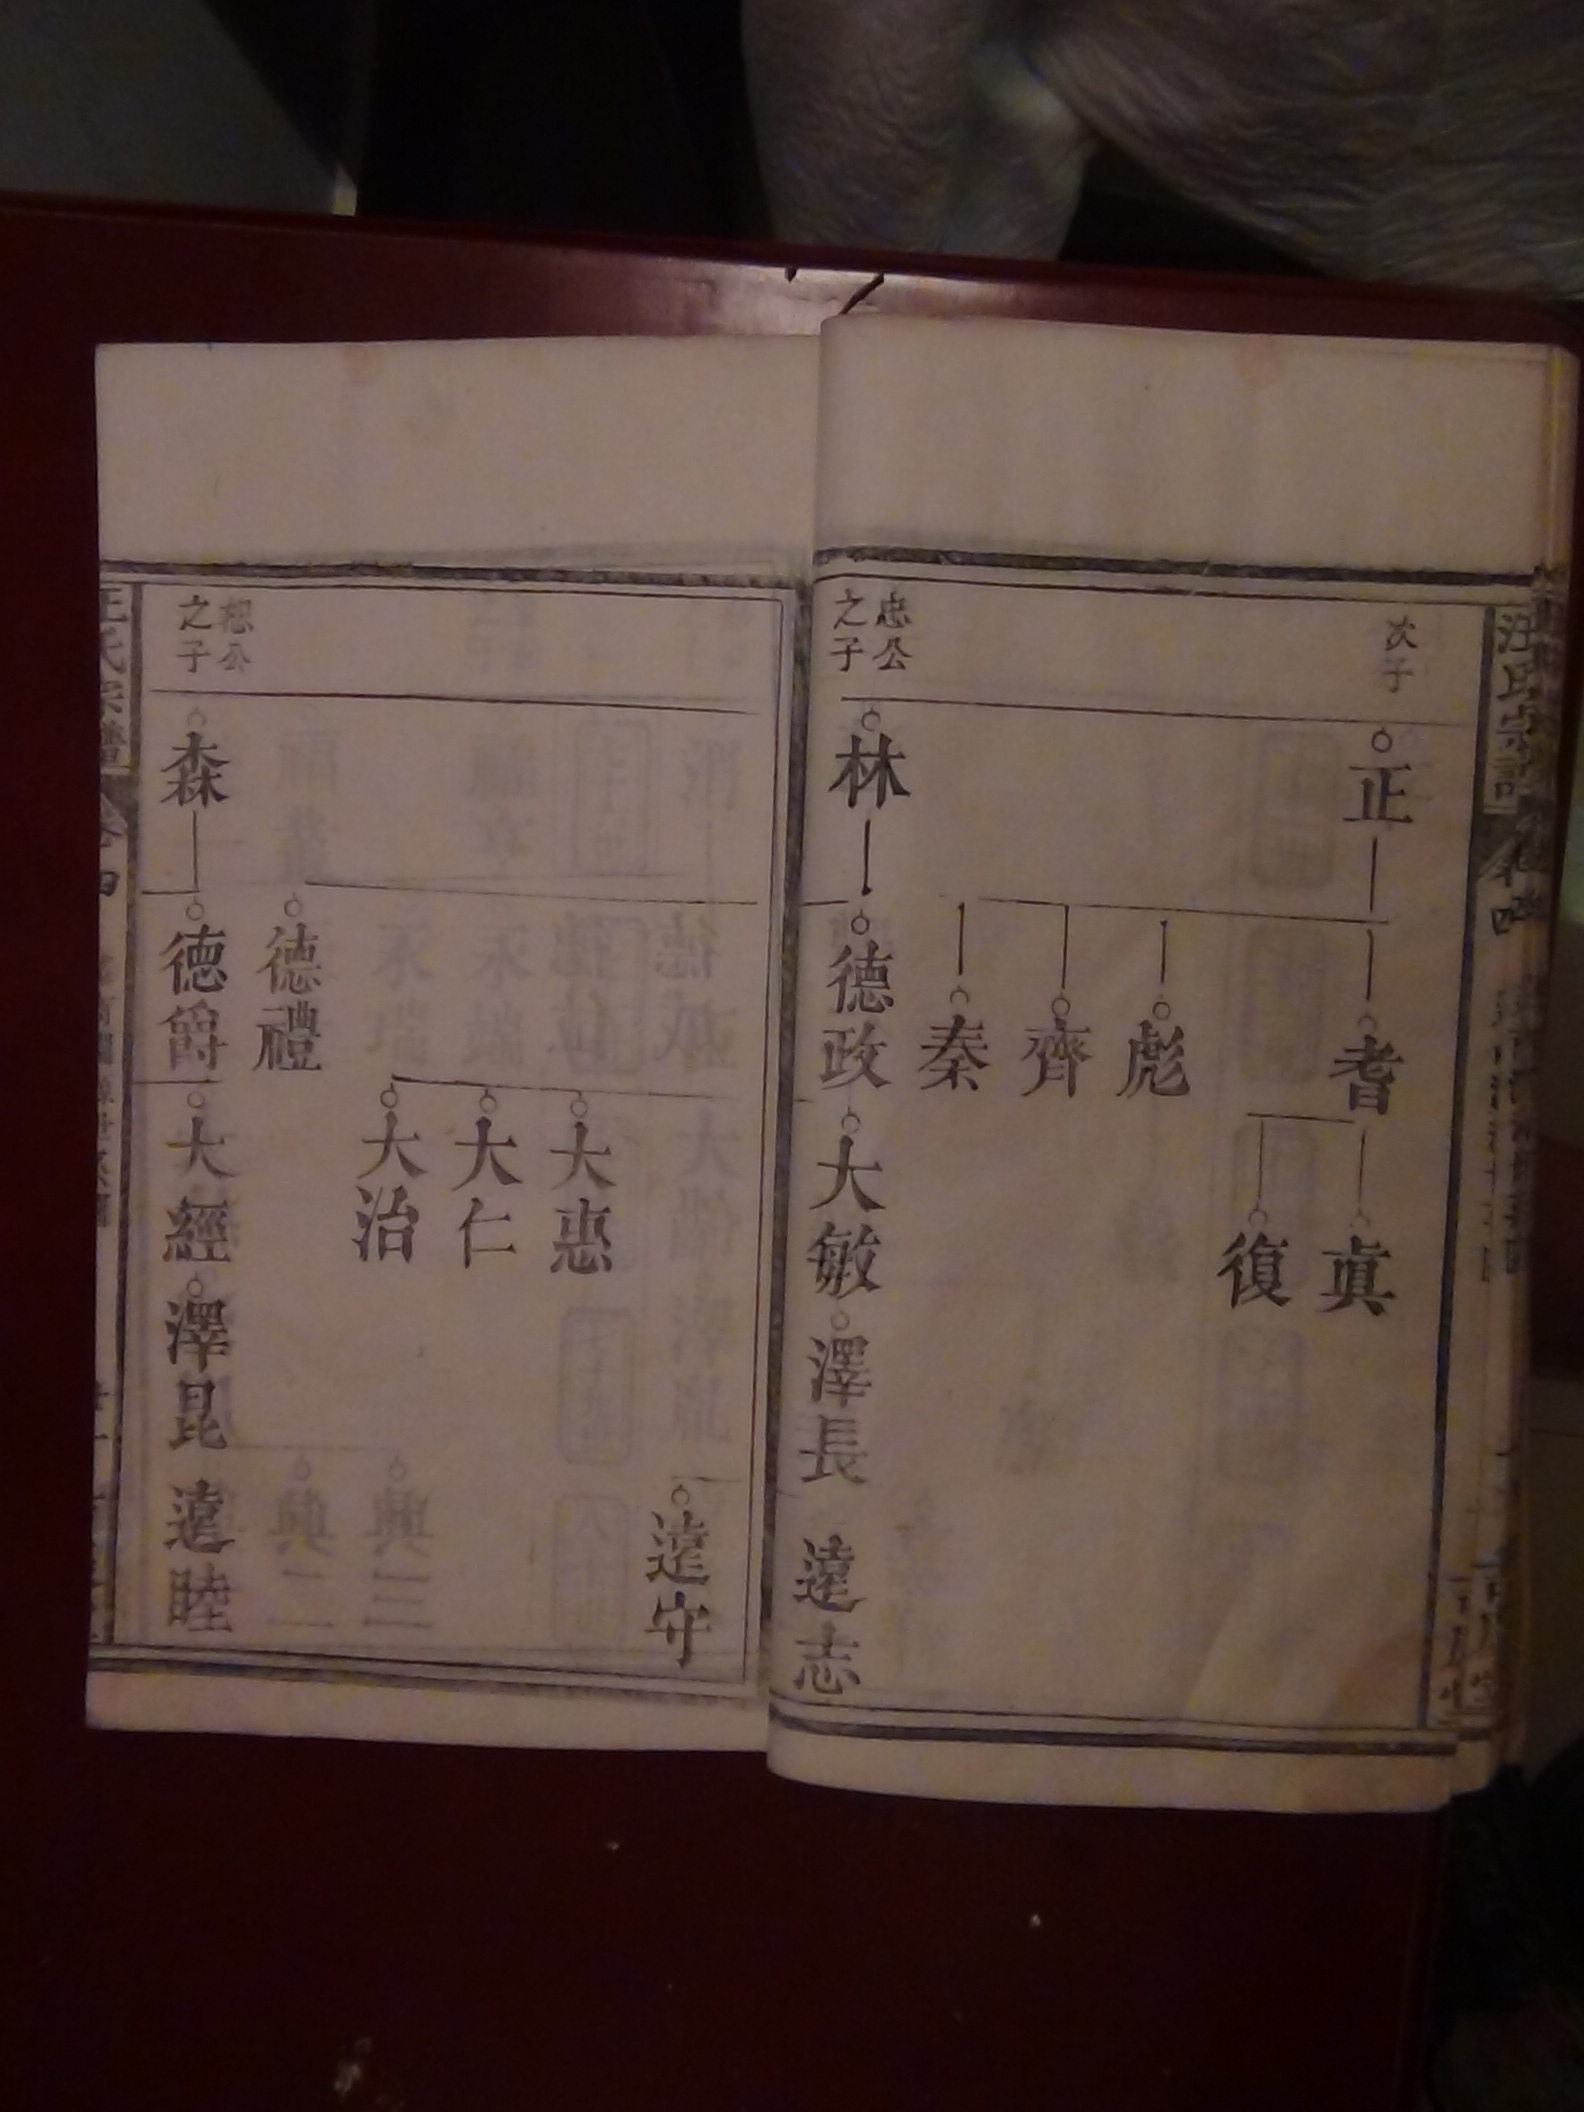 汪氏宗譜
卷四
次子
正
耆
眞
復
彪
齊
秦
忠公
之子
林
德政
大敏
澤長
遠志
遠守
大惠
大仁
大治
德禮
恕公
之子
森
德爵
大經
澤昆
遠睦